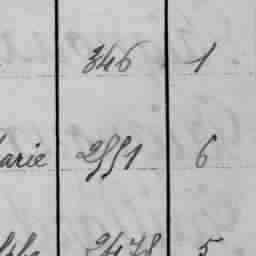 346 1
arie 2551 6
2478 5